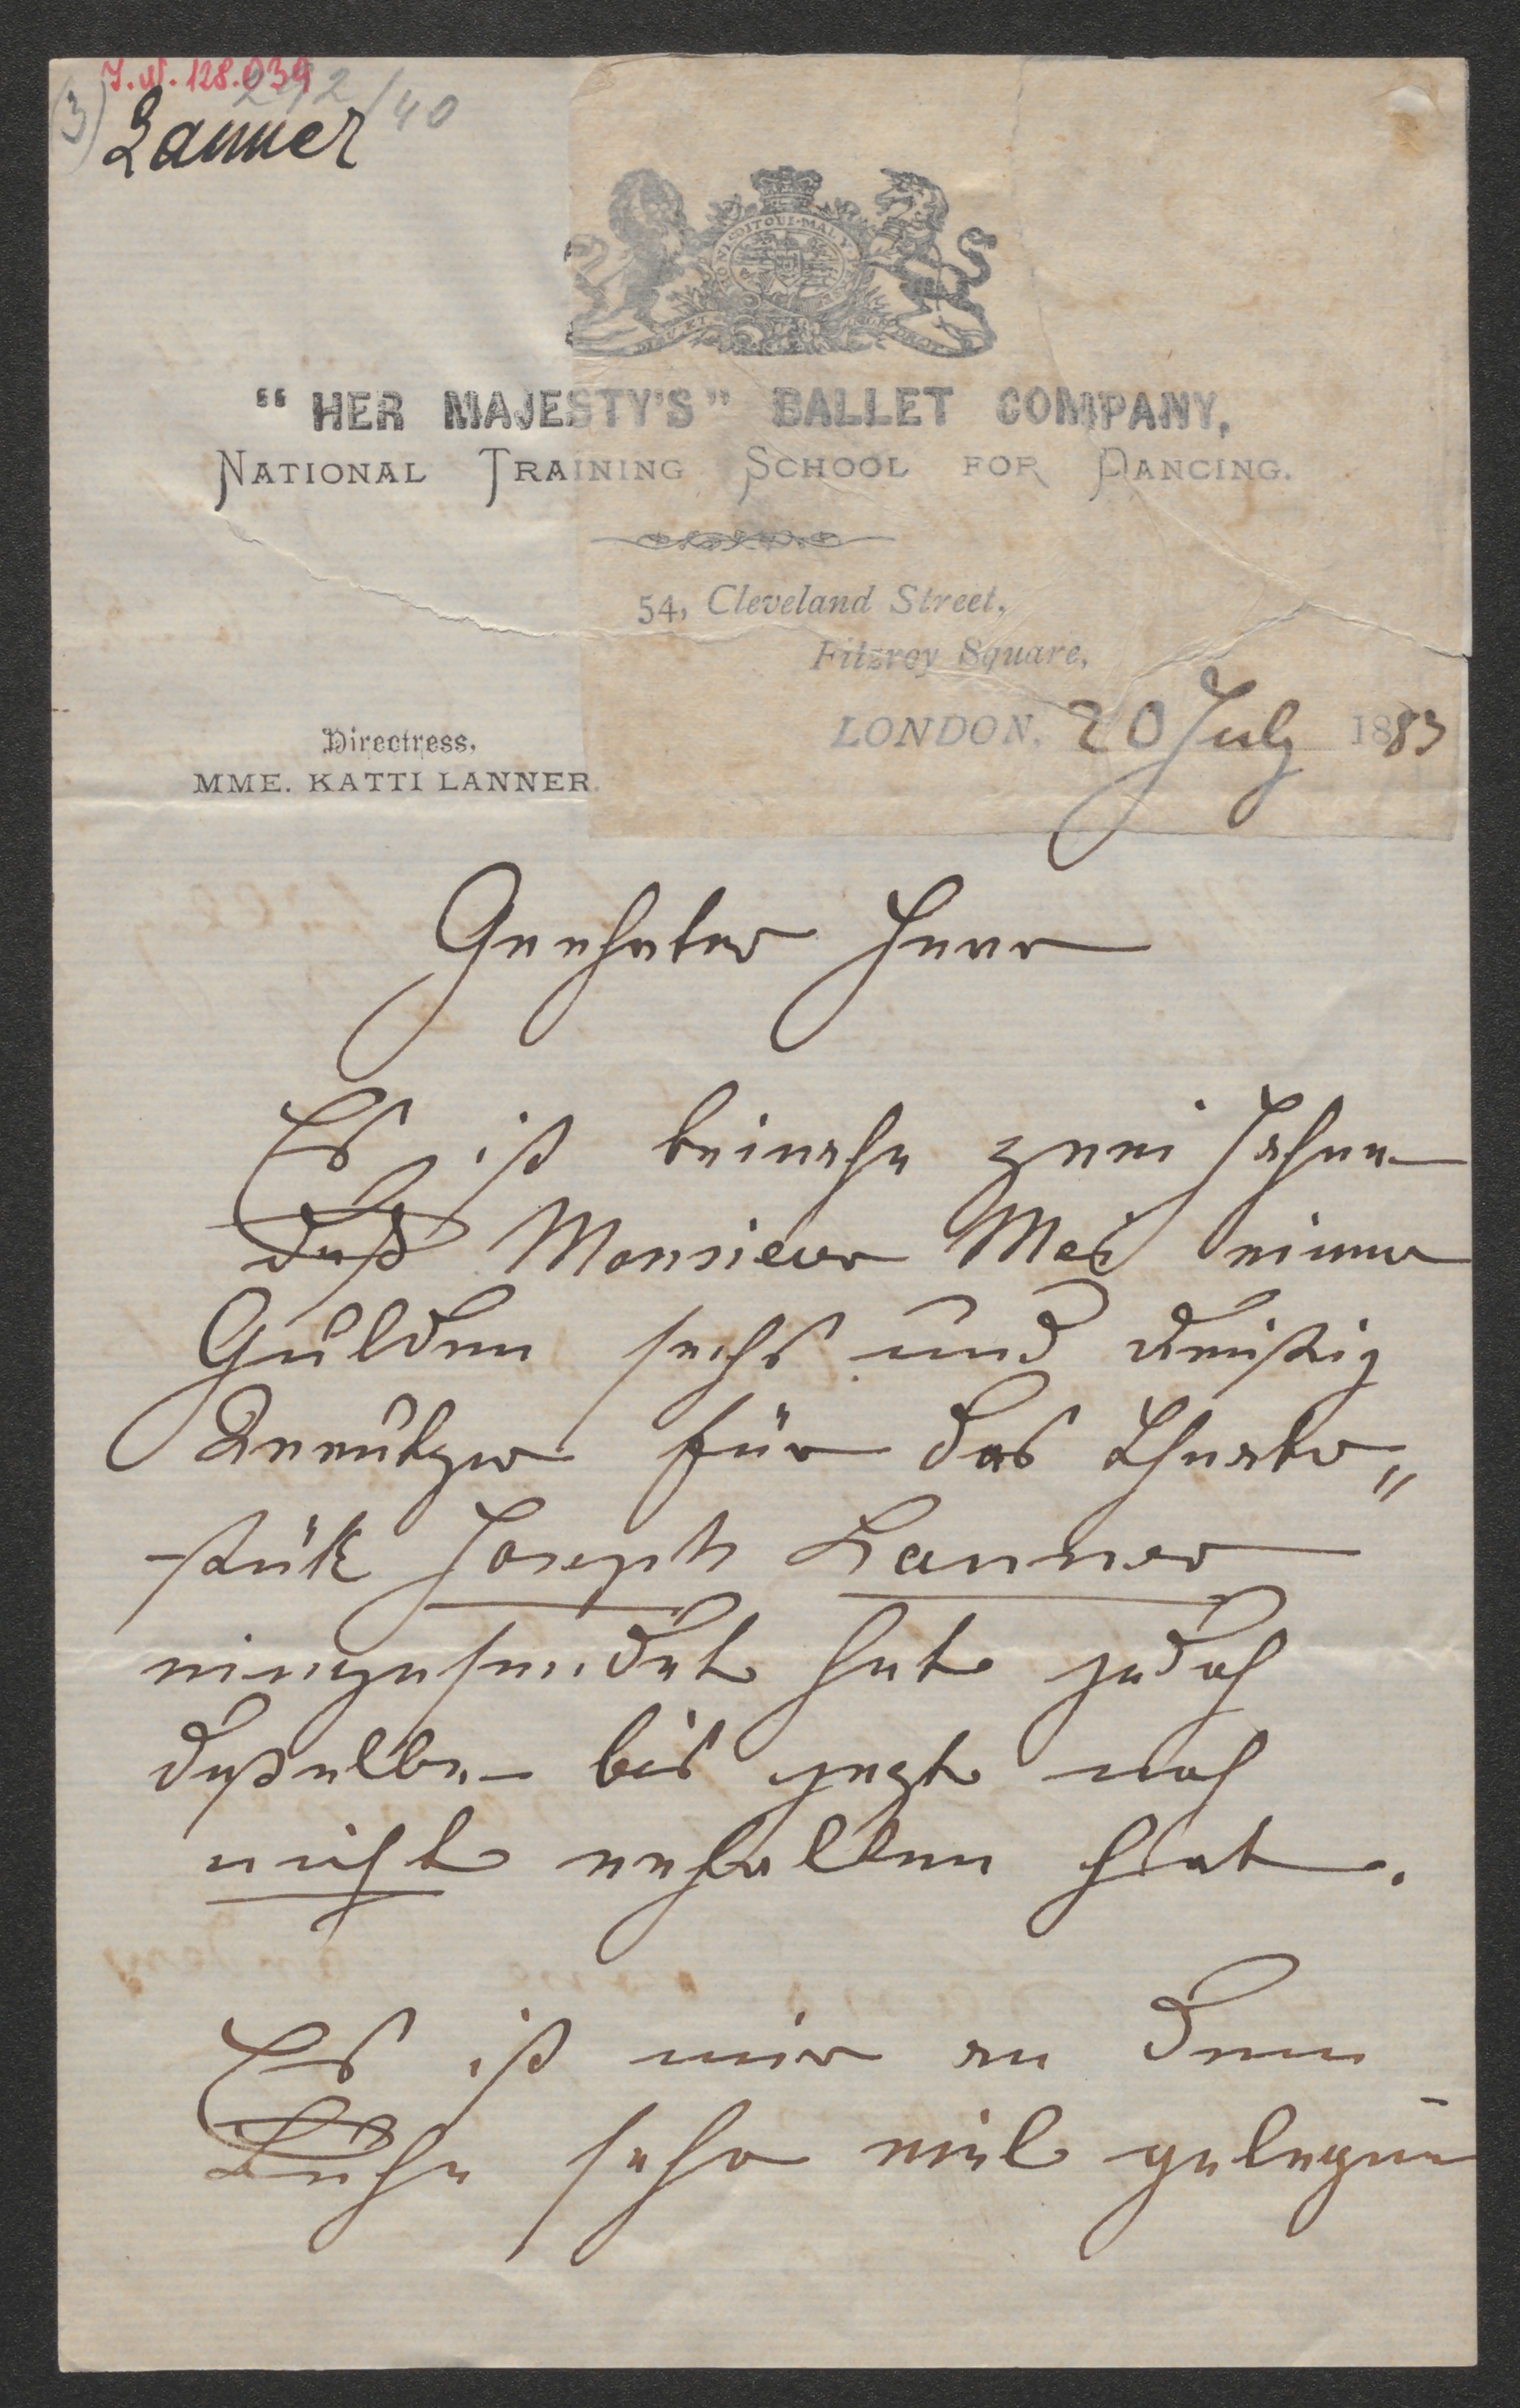 I.N. 128.039
3) 292/40
Lanner
HONI SOIT QUI MAL Y
"HER MAJESTY'S" BALLET COMPANY,
NATIONAL TRAINING SCHOOL FOR DANCING.
54, Cleveland Street,
Fitzroy Square,
LONDON, 20 July 1883
Directress,
MME. KATTI LANNER.
Geehrter Herr
Es ist beinahe zwei Jahre
daß Monsieur Mai einen
Gulden sechs und dreißig
Kreutzer für das Theater„
stük Joseph Lanner
eingesendet hat jedoch
daßelbe bis jezt noch
nicht erhalten hat.
Es ist mir an dem
Buche sehr viel gelegen